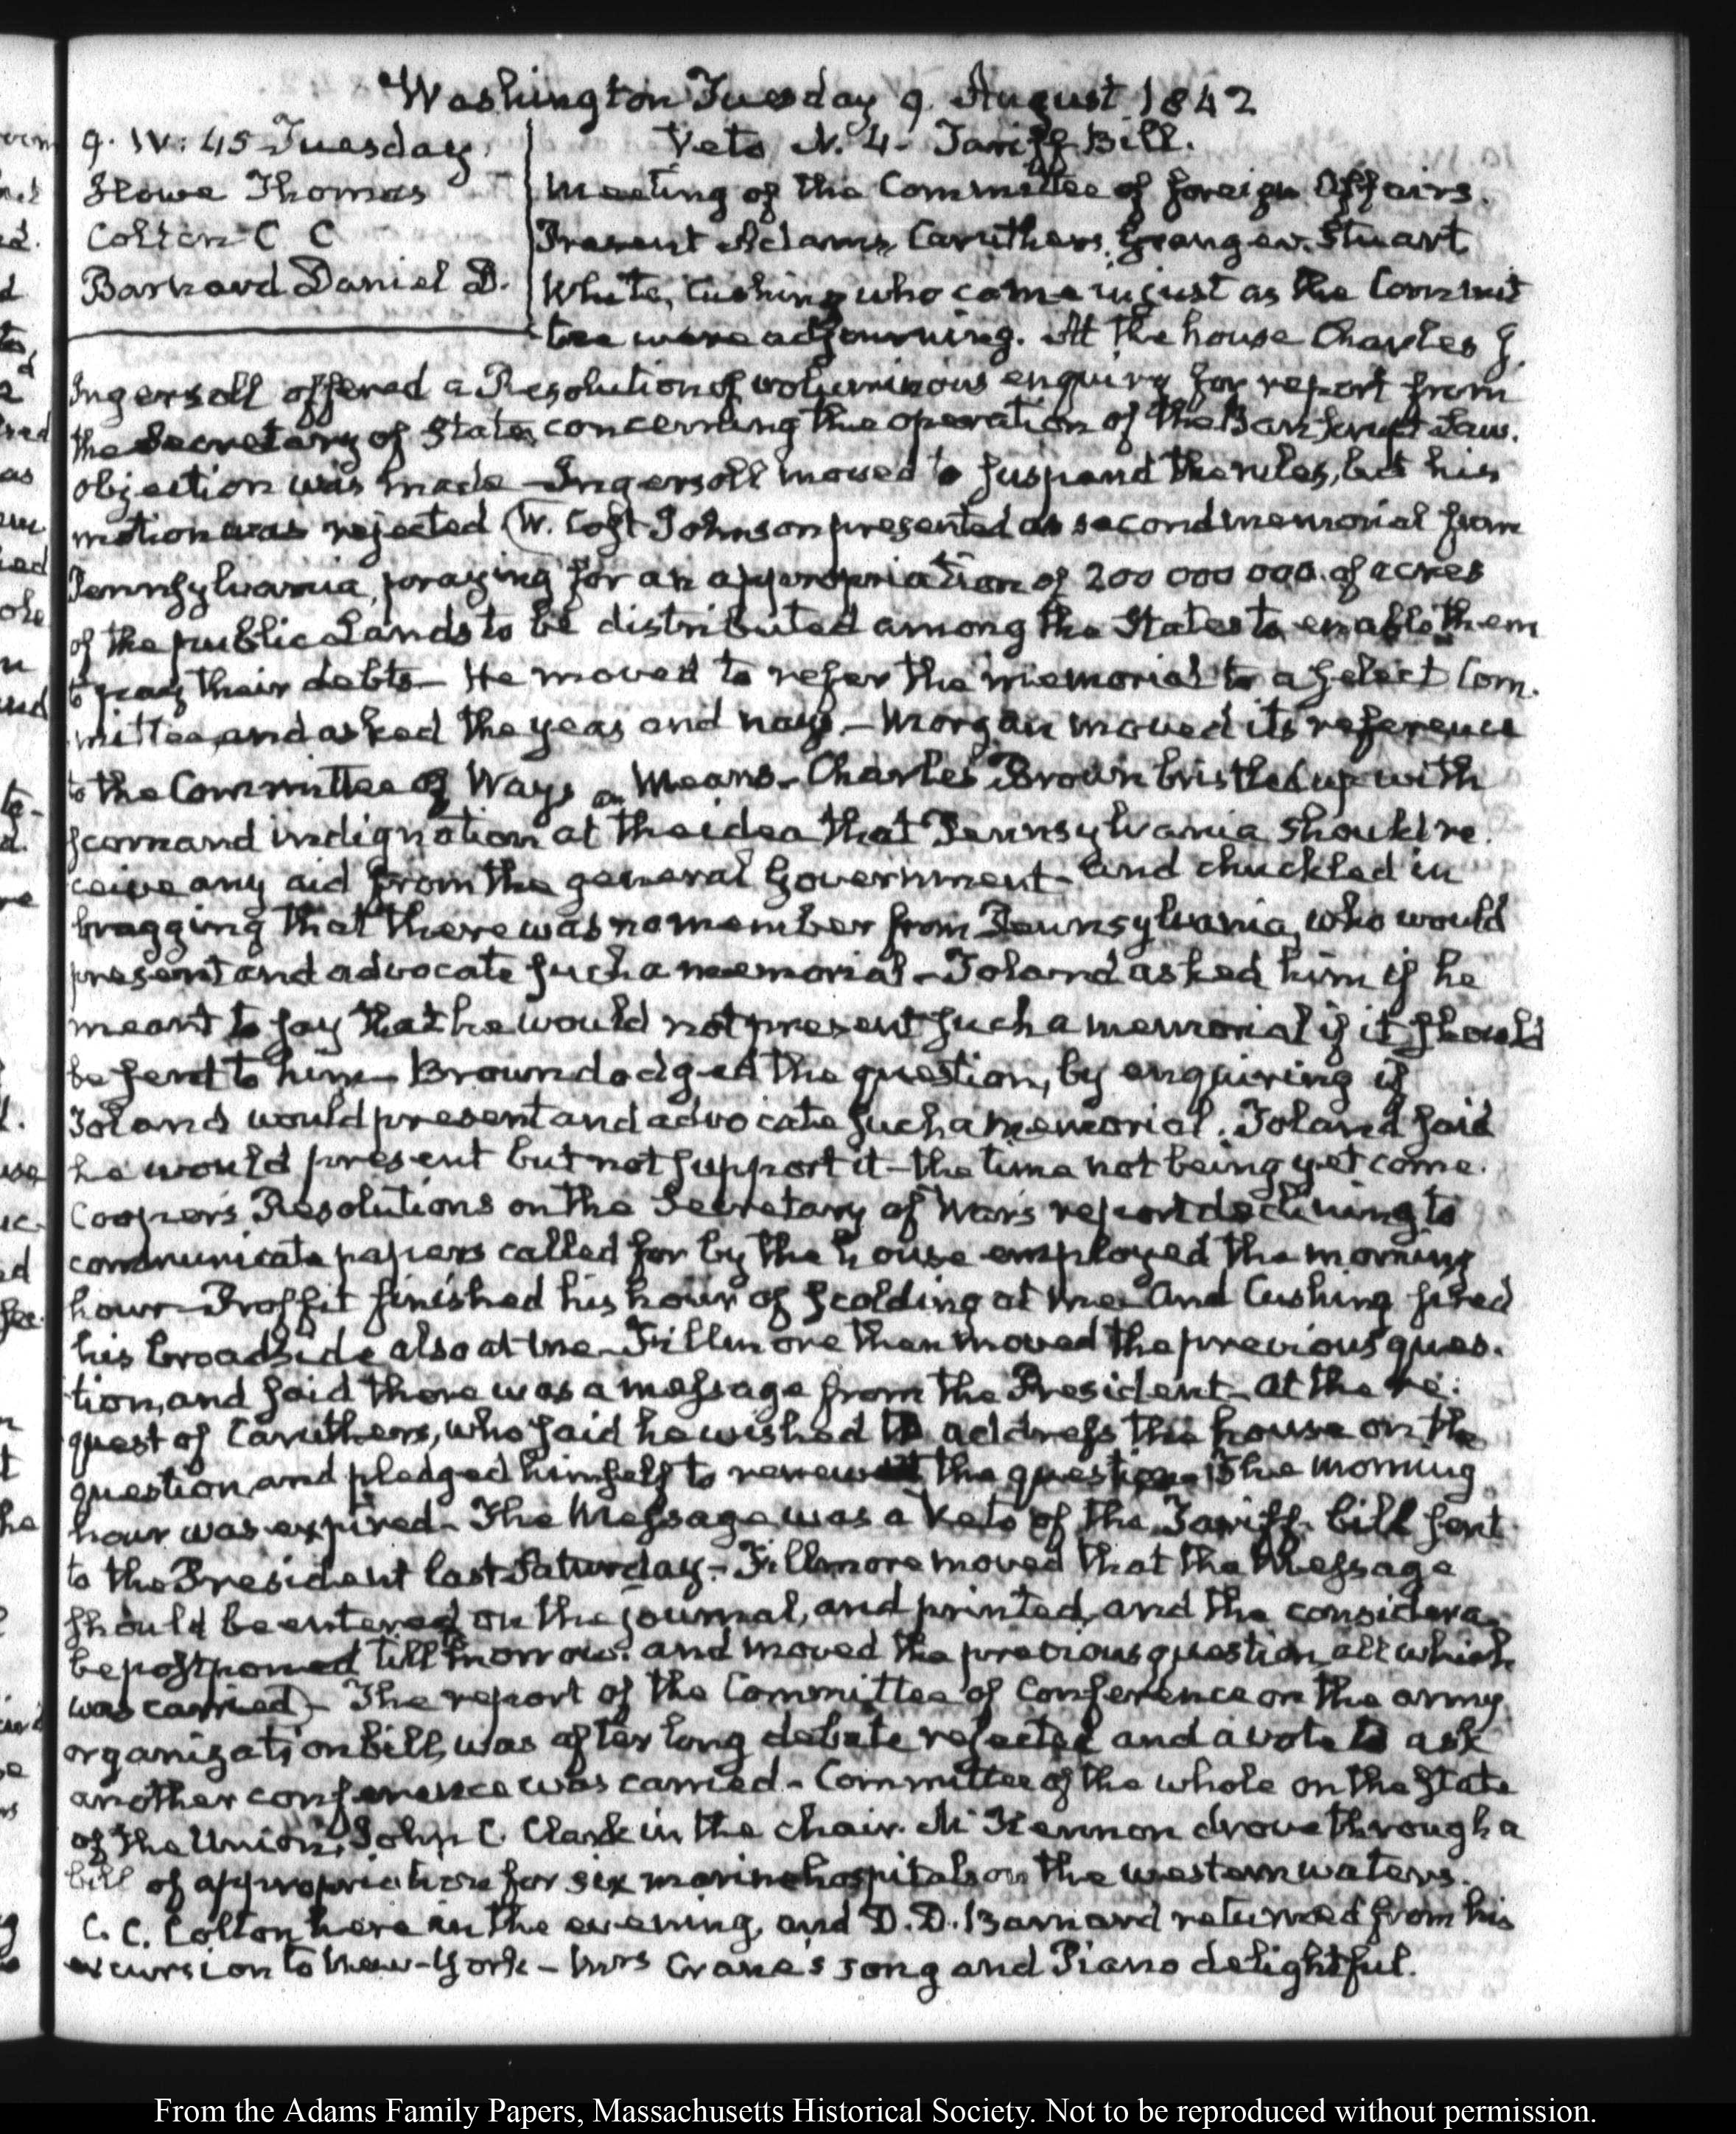 Washington Tuesday 9. August 1842
9. IV: 45 Tuesday
Howe Thomas
Colton C C
Barnard Daniel D.
Veto N. 4 - Tariff Bill.
Meeting of the Committee of foreign Affairs.
Present Adams, Caruthers, Granger, Stuart
White, Cushing who came in just as the Commit
tee were adjourning. At the house Charles J.
Ingersoll offered a Resolution of voluminous enquiry for report from
the Secretary of State, concerning the operation of the Bankrupt Law.
objection was made - Ingersoll moved to suspend the rules, but his
motion was rejected (W. Cost Johnson presented a second memorial from
Pennsylvania, praying for an appropriation of 200 000 000. of acres
of the public Lands to be distributed among the States to enable them
to pay their debts - He moved to refer the memorial to a select Com.
mittee, and asked the yeas and nays. - Morgan moved its reference
to the Committee of Ways & Means - Charles Brown bristled up with
scorn and indignation at the idea that Pennsylvania should re.
ceive any aid from the general Government - and chuckled in
bragging that there was no member from Pennsylvania, who would
present and advocate such a memorial - Toland asked him if he
meant to say that he would not present such a memorial if it should
be sent to him - Brown dodged the question, by enquiring if
Toland would present and advocate such a memorial. Toland said
he would present but not support it - the time not being yet come.
Cooper's Resolutions on the Secretary of War's report declining to
communicate papers called for by the house employed the morning
hour - Proffit finished his hour of scolding at me - And Cushing fired
his broadside also at me - Fillmore then moved the previous ques.
tion, and said there was a message from the President - at the re:
quest of Caruthers, who said he wished to address the house on the
question, and pledged himself to renew the question - The morning
hour was expired - The Message was a Veto of the Tariff bill sent
to the President last Saturday. - Fillmore moved that the Message
should be entered on the journal, and printed, and the considera.
be postponed till tomorrow. and moved the previous question, all which
was carried) - The report of the Committee of Conference on the army
organization bill, was after long debate rejected and a vote to ask
another conference was carried. - Committee of the whole on the state
of the Union, John C. Clark in the chair. McKennon drove through a
bill of appropriation for six marine hospitals on the western waters.
C. C. Colton here in the evening, and D. D. Barnard returned from his
excursion to New-York - Mrs Crane's song and Piano delightful.
From the Adams Family Papers, Massachusetts Historical Society. Not to be reproduced without permission.